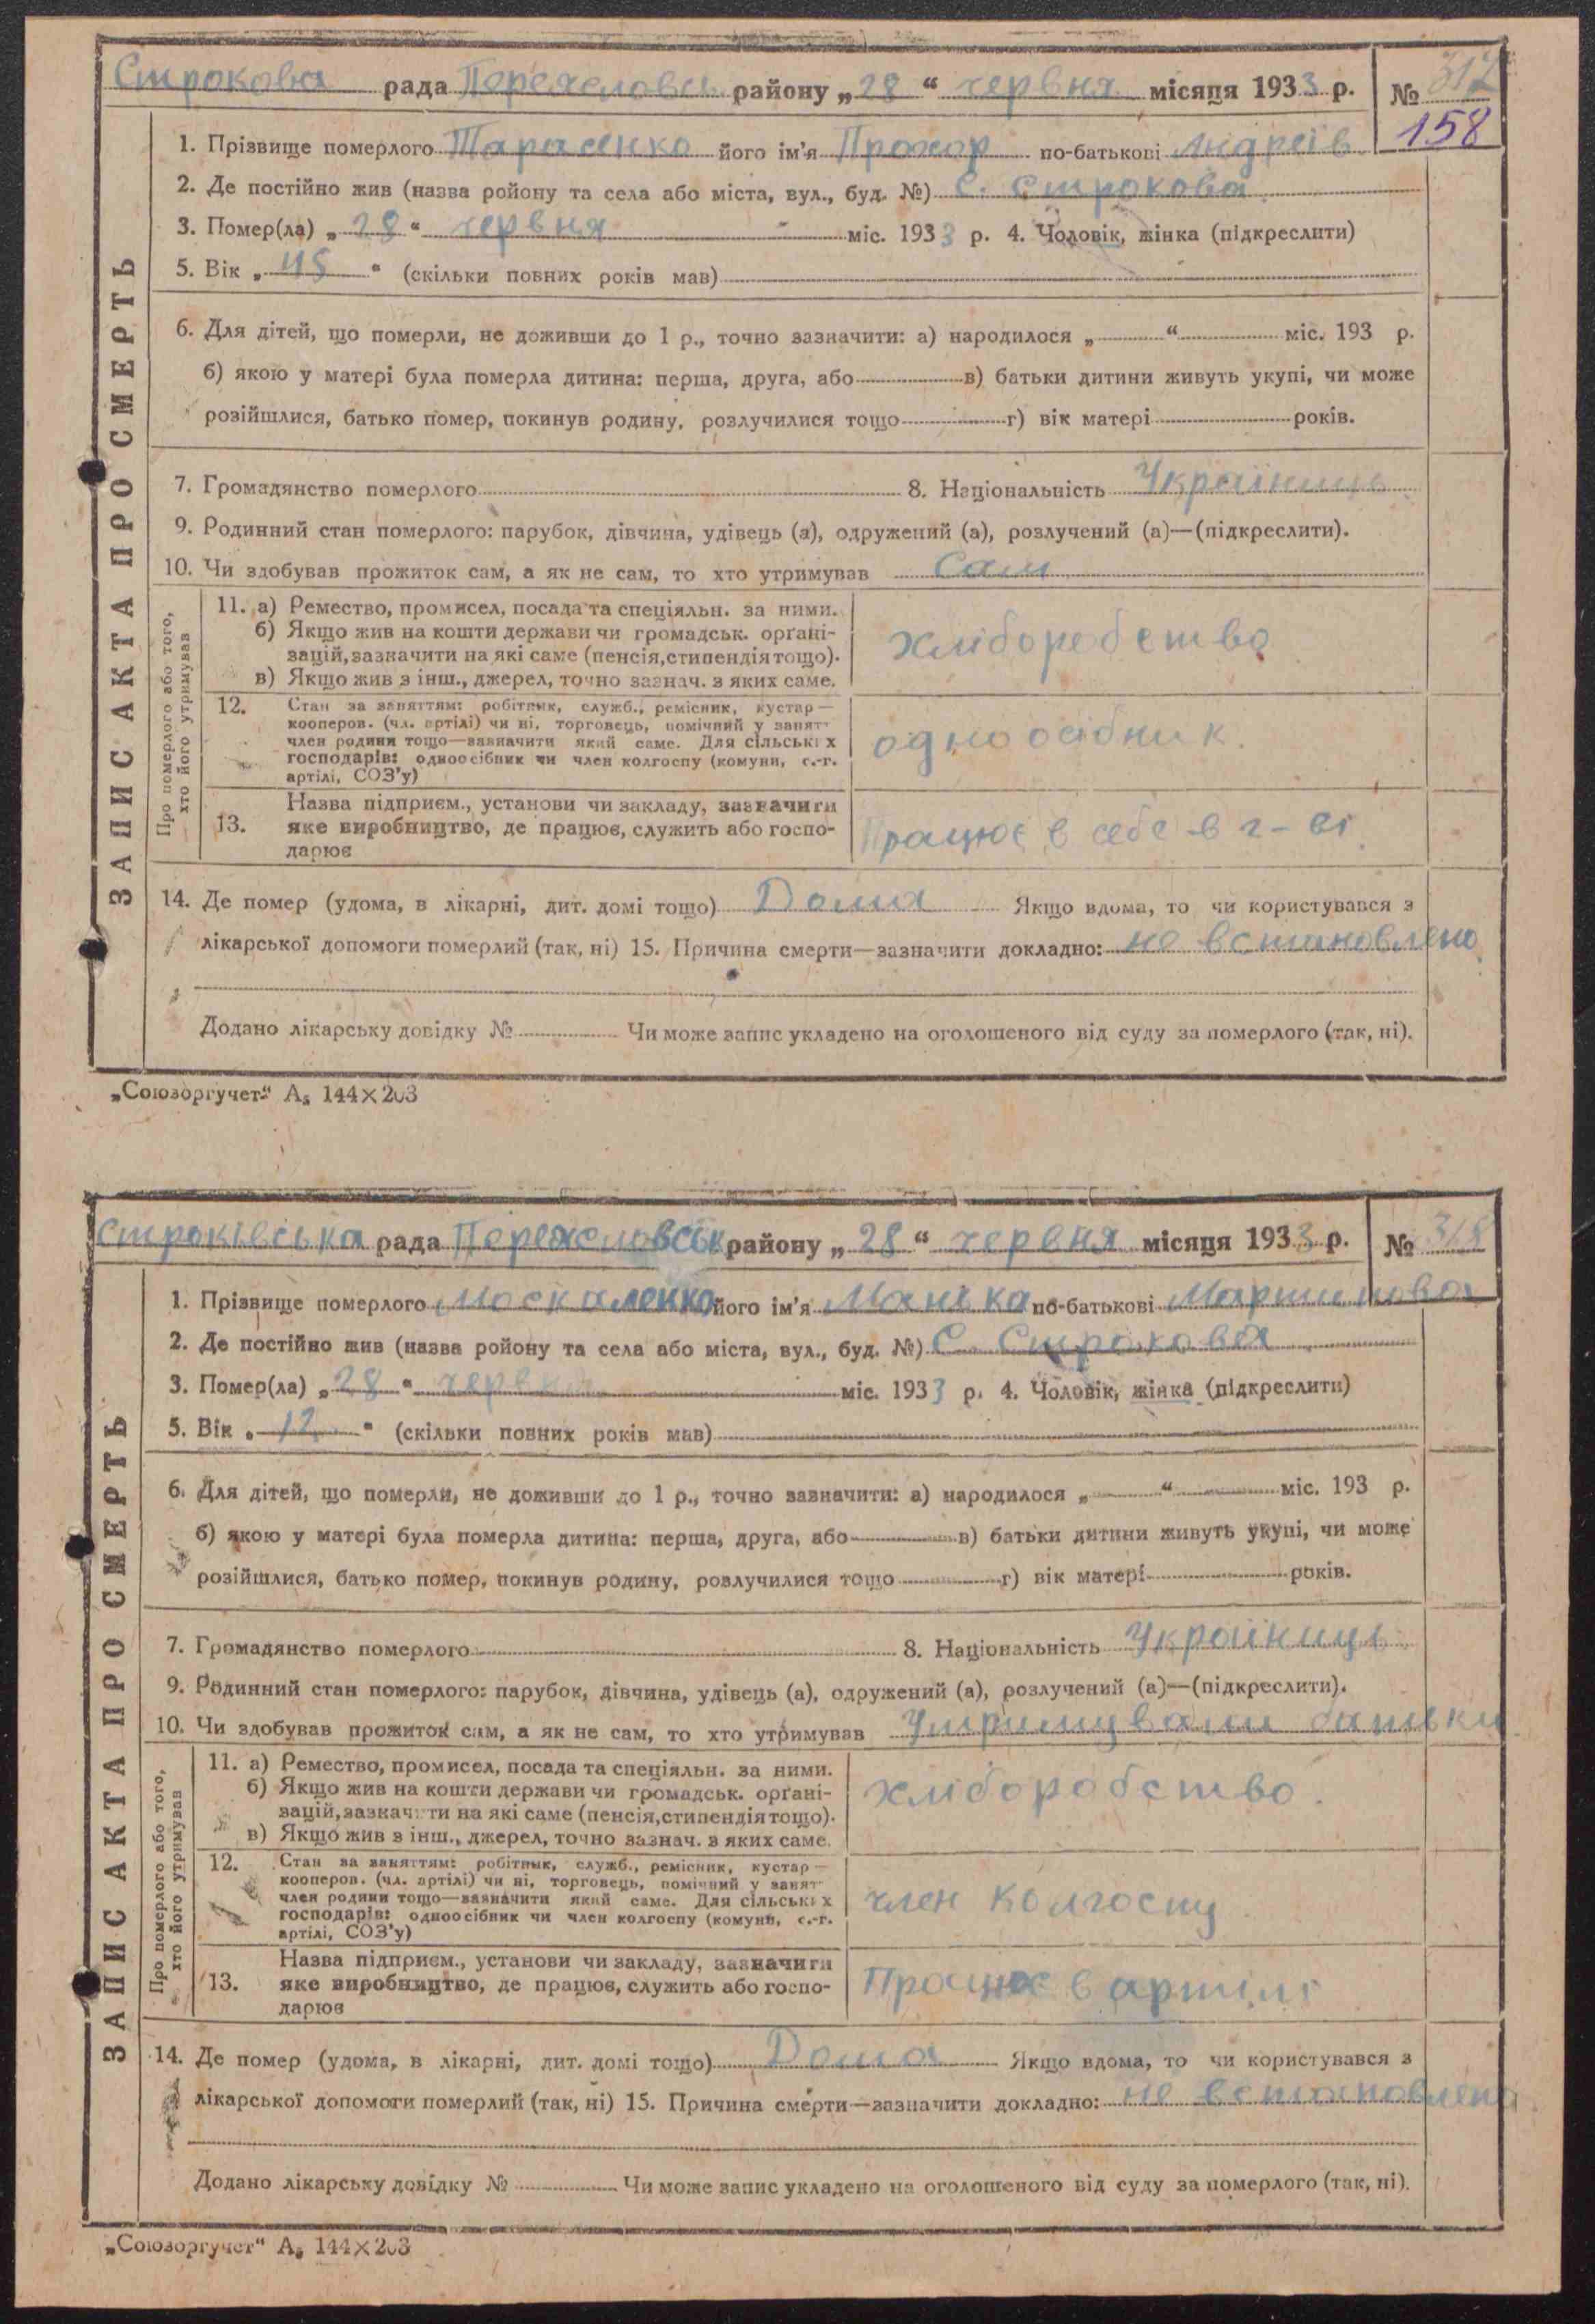 Строкова рада Переяславсь району „28“ червня місяця 1933 р. № 317
158
1. Прізвище померлого Тарасенко його ім’я Прохор по-батькові Андреїв
2. Де постійно жив (назва ройону та села або міста, вул., буд. №) С. Строкова
3. Помер(ла) „28“ червня міс. 1933 р. 4. Чоловік, жінка (підкреслити)
5. Вік „45“ (скільки повних років мав)
6. Для дітей, що померли, не доживши до 1 р., точно зазначити: а) народилося „ “ міс. 193 р.
б) якою у матері була померла дитина: перша, друга, або в) батьки дитини живуть укупі, чи може
розійшлися, батько помер, покинув родину, розлучилися тощо г) вік матері років.
7. Громадянство померлого 8. Національність Українець
9. Родинний стан померлого: парубок, дівчина, удівець (а), одружений (а), розлучений (а)—(підкреслити).
10. Чи здобував прожиток сам, а як не сам, то хто утримував Сам
ЗАПИС АКТА ПРО СМЕРТЬ
Про померлого або того, хто його утримував
11. а) Ремество, промисел, посада та спеціяльн. за ними.
б) Якщо жив на кошти держави чи громадськ. орґані-
зацій, зазначити на які саме (пенсія, стипендія тощо).
в) Якщо жив з інш., джерел, точно зазнач. з яких саме.
хліборобство
12. Стан за заняттям: робітник, служб., ремісник, кустар—
кооперов. (чл. артілі) чи ні, торговець, помічний у занят-
член родини тощо—зазначити який саме. Для сільських
господарів: одноосібник чи член колгоспу (комуни, с.-г.
артілі, СОЗ’у)
одноосібник.
13. Назва підприєм., установи чи закладу, зазначити
яке виробництво, де працює, служить або госпо-
дарює
Працює в себе в г-ві
14. Де помер (удома, в лікарні, дит. домі тощо) Дома Якщо вдома, то чи користувався з
лікарської допомоги померлий (так, ні) 15. Причина смерти—зазначити докладно: не встановлено
Додано лікарську довідку № Чи може запис укладено на оголошеного від суду за померлого (так, ні).
„Союзоргучет“ А₅ 144×203
Строківська рада Переяславськ району „28“ червня місяця 1933 р. № 318
1. Прізвище померлого Москаленко його ім’я Манька по-батькові Мартинова
2. Де постійно жив (назва ройону та села або міста, вул., буд. №) С. Строкова
3. Помер(ла) „28“ червня міс. 1933 р. 4. Чоловік, жінка (підкреслити)
5. Вік „12“ (скільки повних років мав)
6. Для дітей, що померли, не доживши до 1 р., точно зазначити: а) народилося „ “ міс. 193 р.
б) якою у матері була померла дитина: перша, друга, або в) батьки дитини живуть укупі, чи може
розійшлися, батько помер, покинув родину, розлучилися тощо г) вік матері років.
7. Громадянство померлого 8. Національність Українець
9. Родинний стан померлого: парубок, дівчина, удівець (а), одружений (а), розлучений (а)—(підкреслити).
10. Чи здобував прожиток сам, а як не сам, то хто утримував Утримували батьки
ЗАПИС АКТА ПРО СМЕРТЬ
Про померлого або того, хто його утримував
11. а) Ремество, промисел, посада та спеціяльн. за ними.
б) Якщо жив на кошти держави чи громадськ. орґані-
зацій, зазначити на які саме (пенсія, стипендія тощо).
в) Якщо жив з інш., джерел, точно зазнач. з яких саме.
хліборобство.
12. Стан за заняттям: робітник, служб., ремісник, кустар—
кооперов. (чл. артілі) чи ні, торговець, помічний у занят-
член родини тощо—зазначити який саме. Для сільських
господарів: одноосібник чи член колгоспу (комуни, с.-г.
артілі, СОЗ’у)
член колгоспу
13. Назва підприєм., установи чи закладу, зазначити
яке виробництво, де працює, служить або госпо-
дарює
Працює в артилі
14. Де помер (удома, в лікарні, дит. домі тощо) Дома Якщо вдома, то чи користувався з
лікарської допомоги померлий (так, ні) 15. Причина смерти—зазначити докладно: не встановлено
Додано лікарську довідку № Чи може запис укладено на оголошеного від суду за померлого (так, ні).
„Союзоргучет“ А₅ 144×203